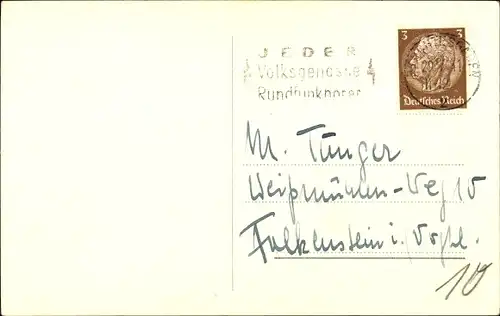 JEDER
Volksgenosse
Rundfunkhörer
3 3
Deutsches Reich
M. Tünger
Weißmühlen-Weg 10
Falkenstein i. Vogtl.
10